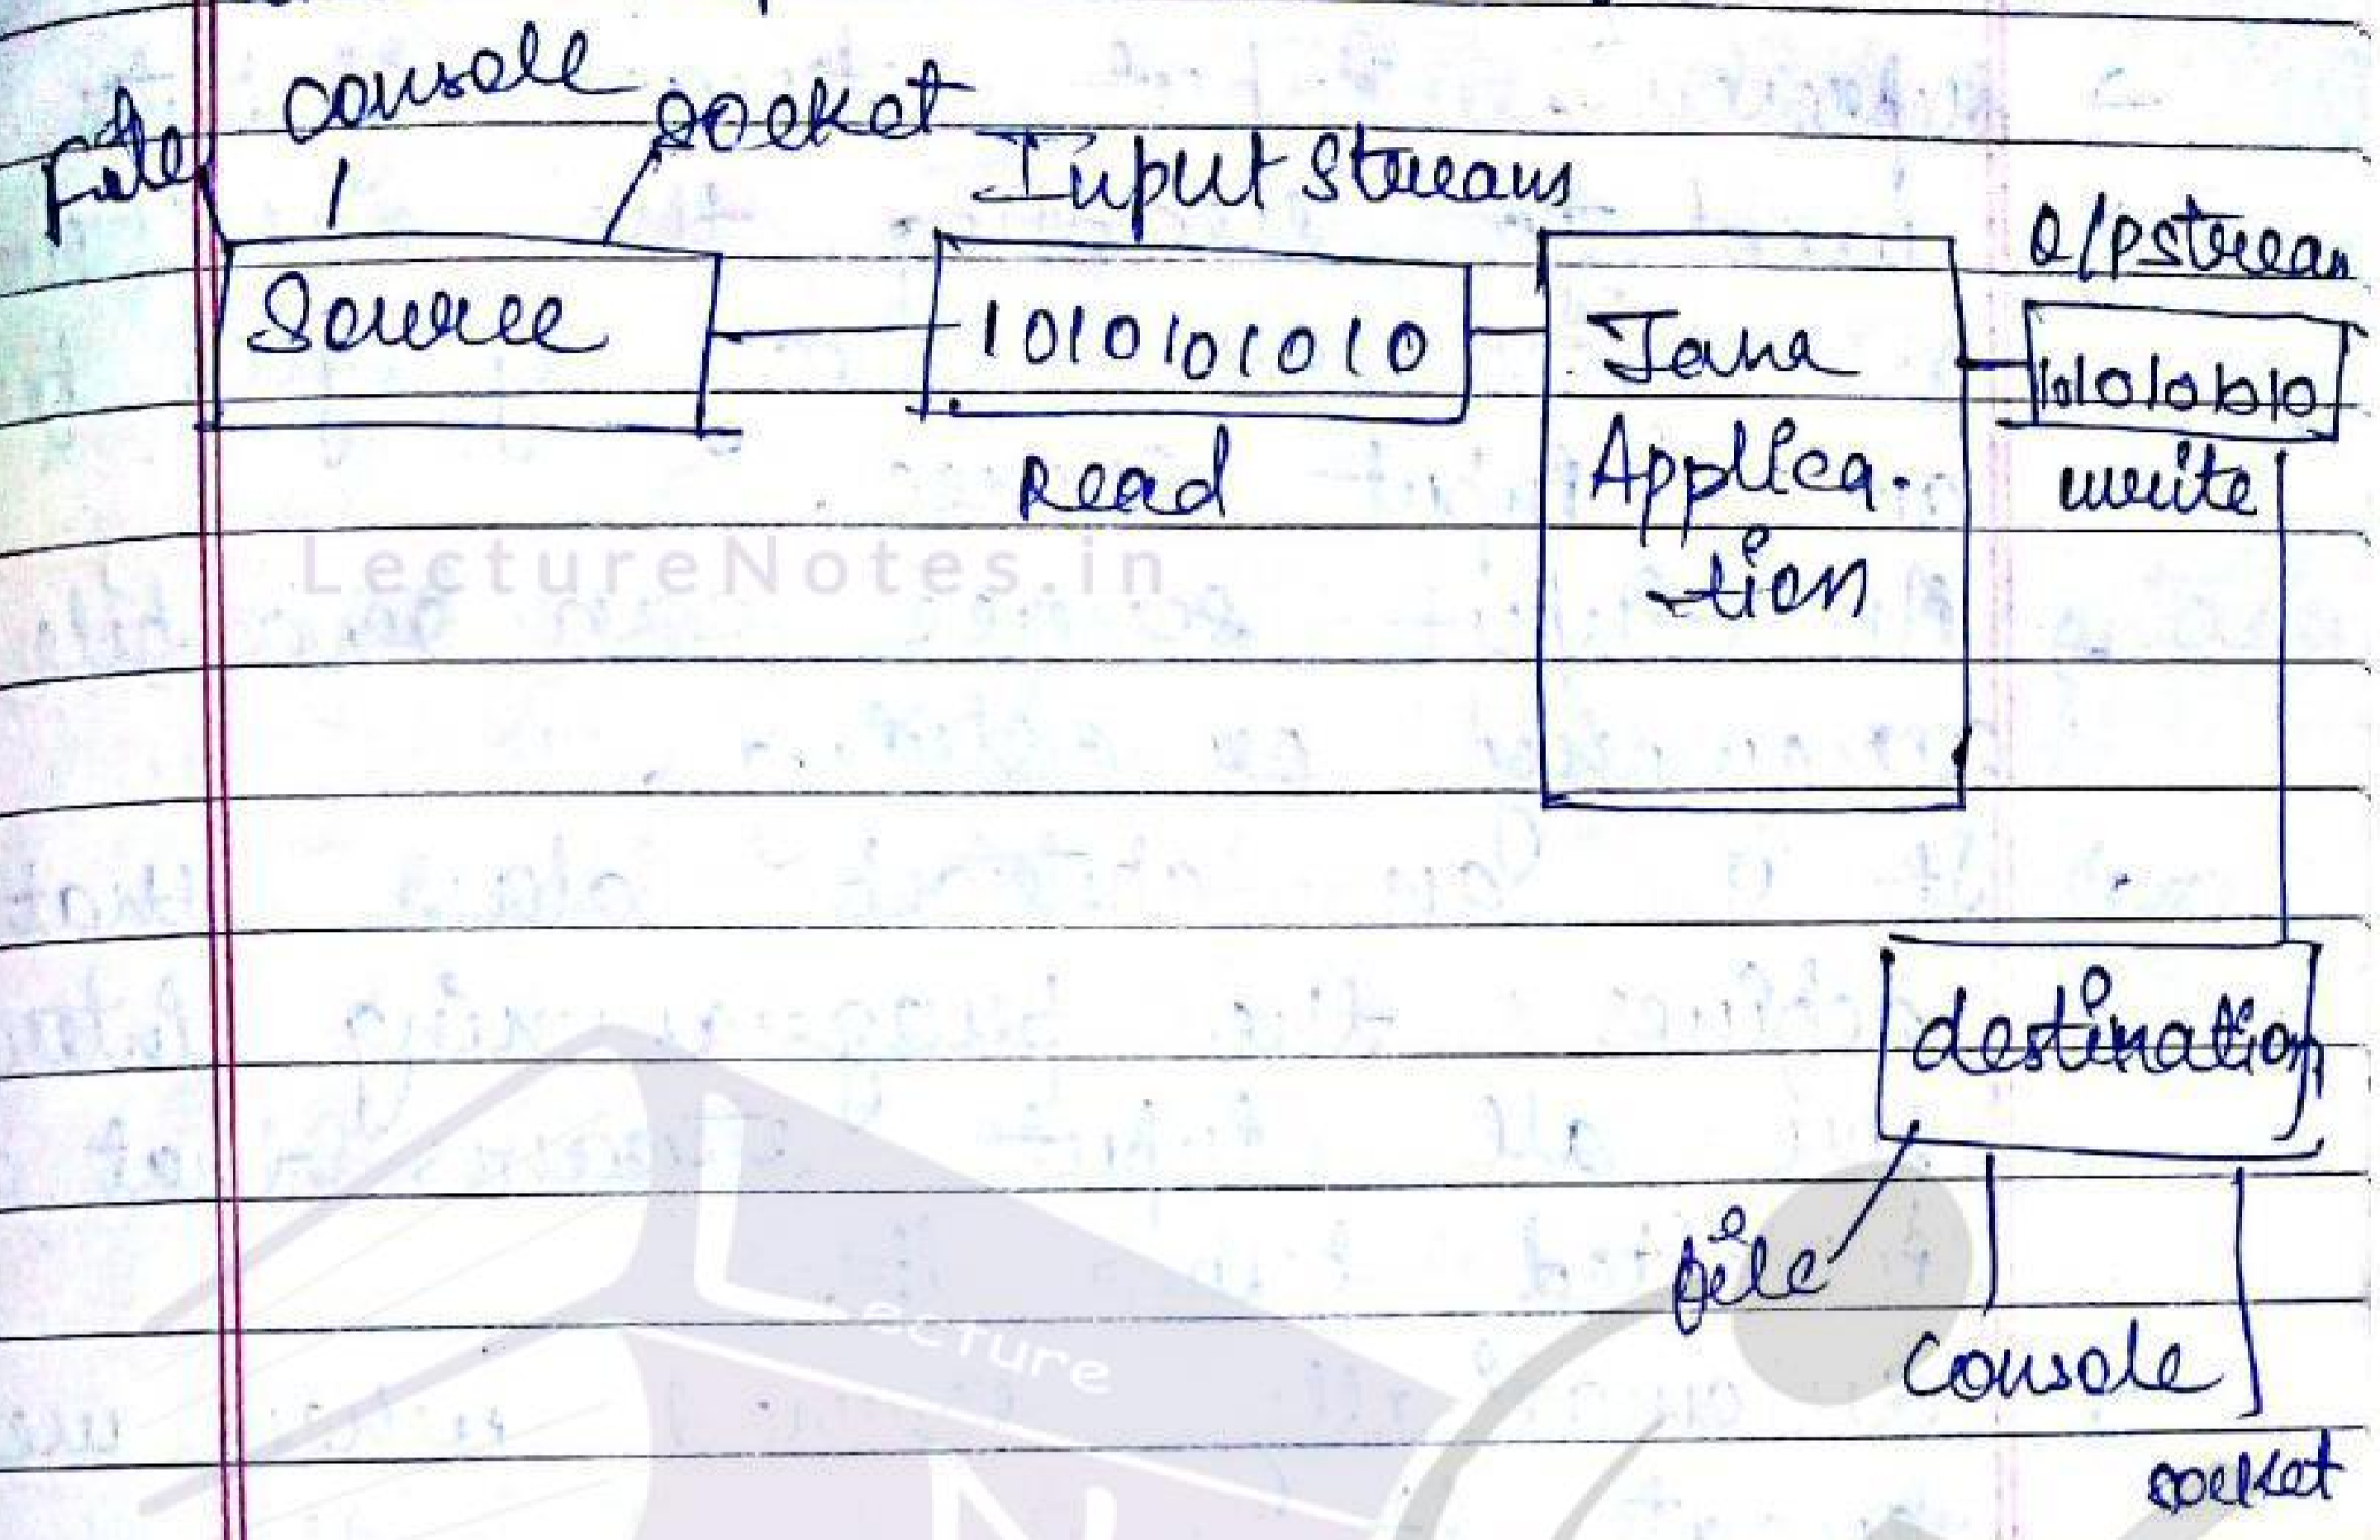 File
console
socket
Input Streams
O/P stream
Source
1010101010
Java
Applica-
tion
Read
write
LectureNotes.in
destination
file
console
socket
Lecture
N